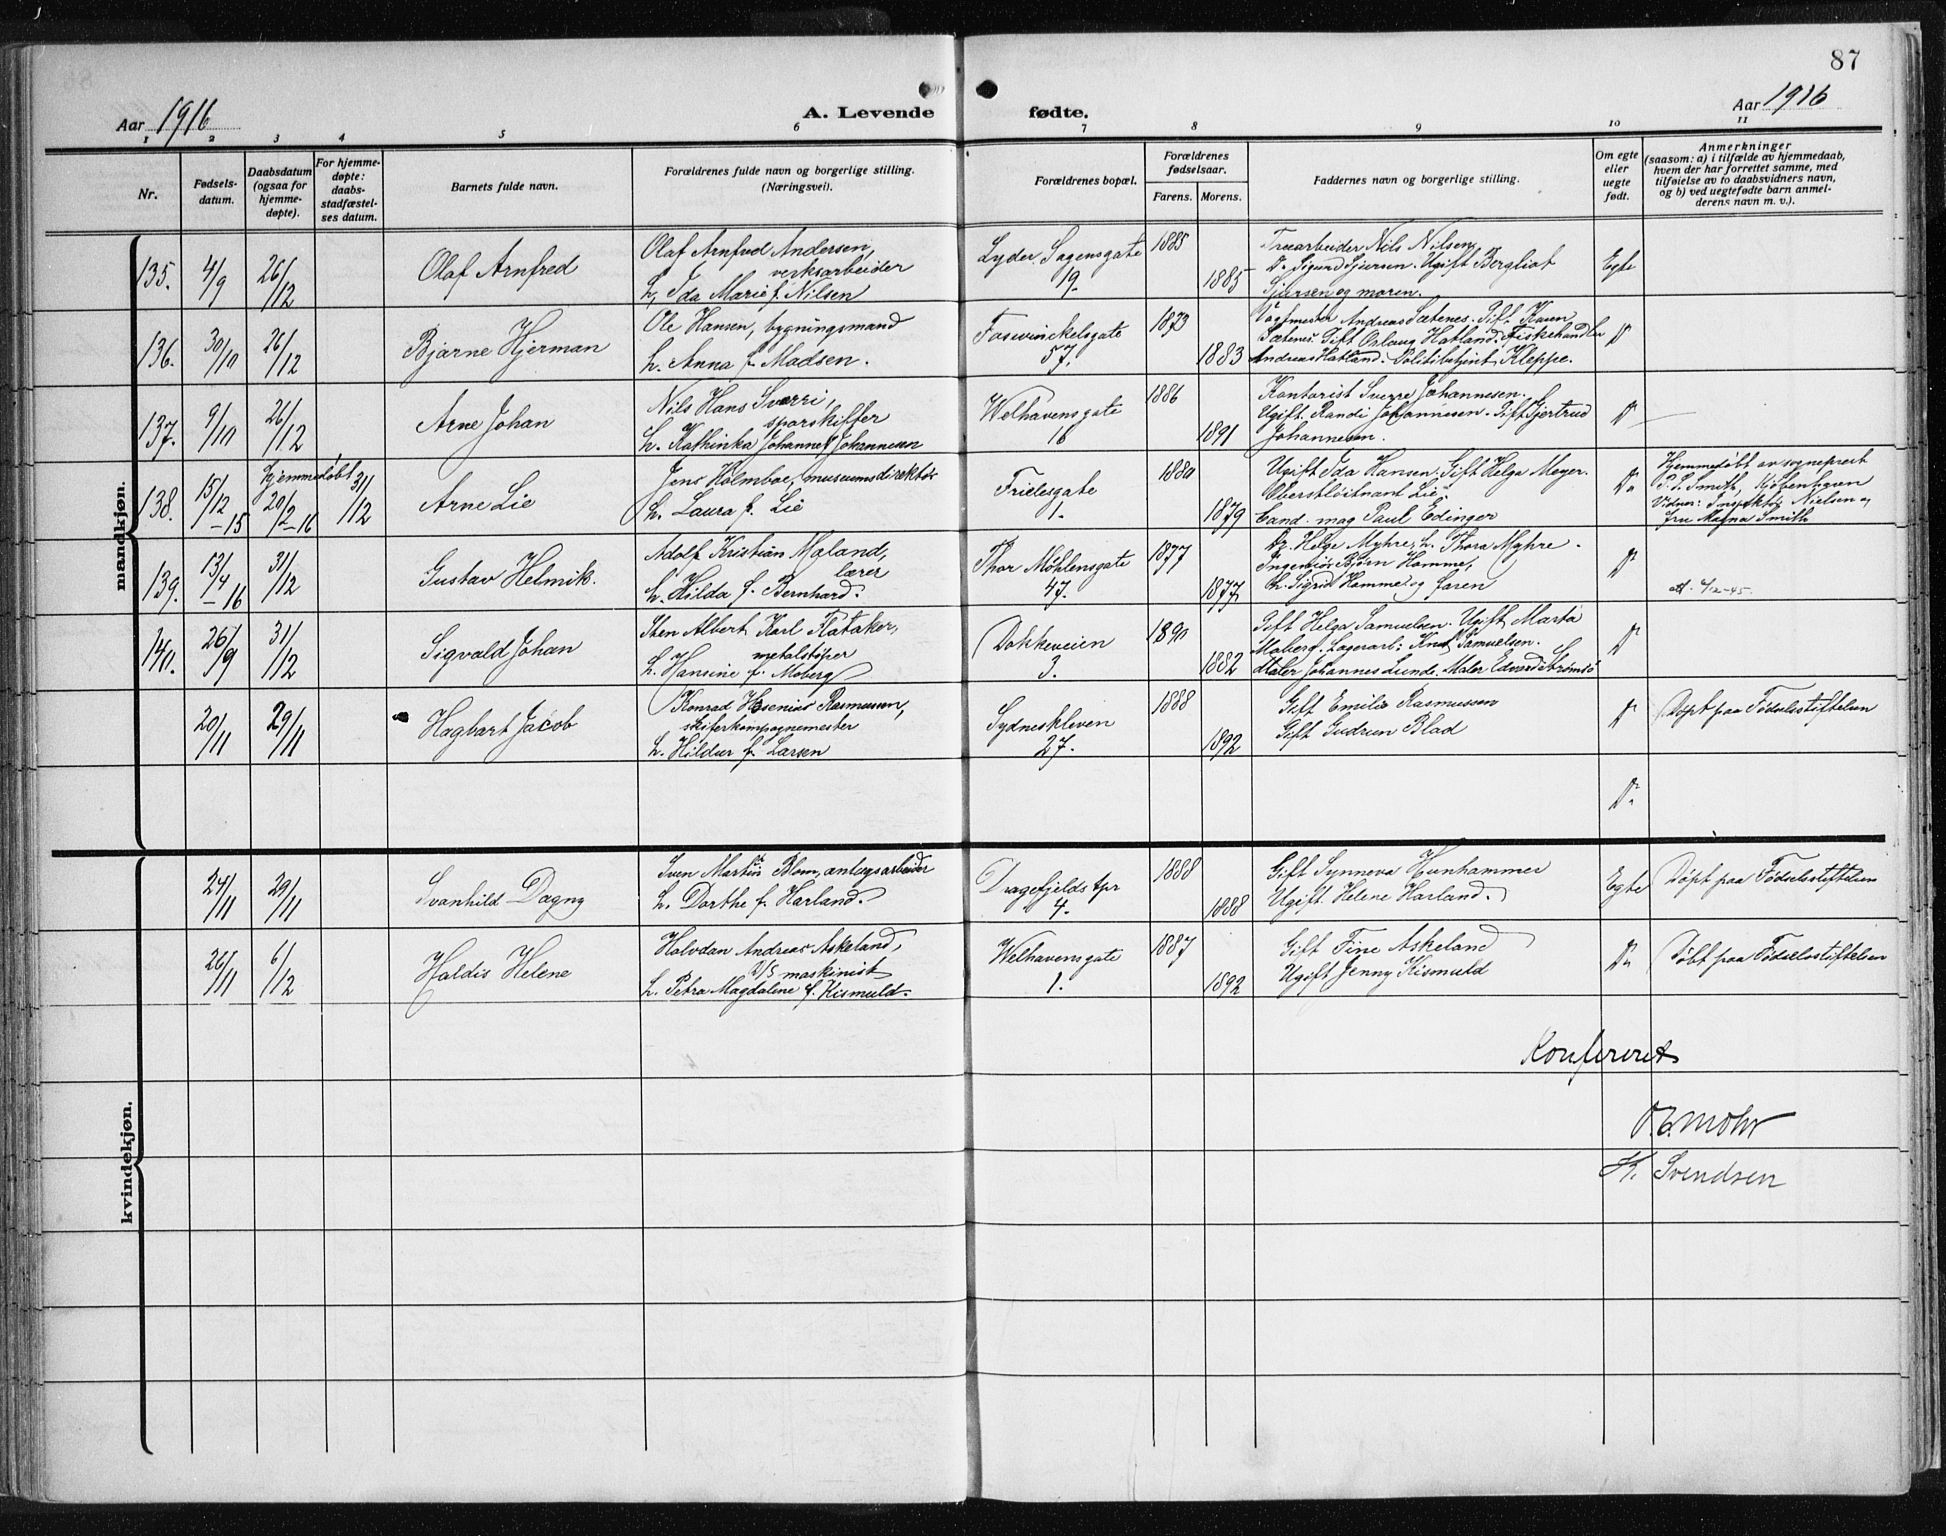 87
Aar 1916
A. Levende
fødte.
Aar 1916
1 2 3 4 5 6 7 8 9 10 11
Nr.
Fødsels-
datum.
Daabsdatum
(ogsaa for
hjemme-
døpte).
For hjemme-
døpte:
daabs-
stadfæstel-
ses datum.
Barnets fulde navn.
Forældrenes fulde navn og borgerlige stilling.
(Næringsvei).
Forældrenes bopæl.
Forældrenes
fødselsaar.
Farens. Morens.
Faddernes navn og borgerlige stilling.
Om egte
eller
uegte
født.
Anmerkninger
(saasom: a) i tilfælde av hjemmedaab,
hvem der har forrettet samme, med
tilføielse av to daabsvidners navn,
og b) ved uegtefødte barn anmel-
derens navn m. v.).
mandkjøn.
135.
4/9
26/12
Olaf Arnfred
Olaf Arnfred Andersen,
verksarbeider
h. Ida Marie f. Nilsen
Lyder Sagensgate
19.
1885
1885
Træarbeider Nils Nilsen,
Do Sigurd Sjursen. Ugift Bergliot
Sjursen og moren.
Egte
136.
30/10
26/12
Bjarne Hjerman
Ole Hansen, bygningsmand
h. Anna f. Madsen.
Foswinckelsgate
57.
1873
1883
Vagtmester Andreas Sætenes. Gift Karen
Sætenes. Gift Orlaug Hatland. Fiskehandler
Andreas Hatland. Politibetjent Kleppe.
Do
137.
9/10
26/12
Arne Johan
Nils Hans Sverri,
sporskifter
h. Kathinka Johanne f. Johannesen
Welhavensgate
16
1886
1891
Kontorist Sverre Johannesen.
Ugift Randi Johannesen. Gift Gjertrud
Johannesen.
Do
138.
15/12
-15
Hjemmedøbt
20/2-16
31/12
Arne Lie
Jens Holmboe, museumsdirektør
h. Laura f. Lie
Frielesgate
1.
1880
1879
Ugift Ida Hansen. Gift Helga Meyer.
Oberstløitnant Lie,
Cand. mag Paul Edinger
Do
Hjemmedøbt av sogneprest
P. P. Smith, Kjøbenhavn
Vidner: Inspektør Nielsen og
fru Magna Smith
139.
13/4
-16
31/12
Gustav Helmik.
Adolf Kristian Moland,
lærer
h. Hilda f. Bernhard.
Thor Møhlensgate
47.
1877
1877
Dr. Helge Myhre, h. Thora Myhre.
Ingeniør Bjørn Homme,
h. Sigrid Homme og faren
Do
140.
26/9
31/12
Sigvald Johan
Sten Albert Karl Flataker,
metalstøper
h. Hansine f. Moberg
Dokkeveien
3.
1890
1882
Gift Helga Samuelsen. Ugift Marta
Moberg. Lagerarb. Knut Samuelsen.
Maler Johannes Lunde. Maler Edvard Strømsø
Do
20/11
29/11
Hagbart Jacob
Konrad Hosenius Rasmussen,
h. Hildur f. Larsen
Sydneskleven
27.
1888
1892
Gift Emilie Rasmussen
Gift Gudrun Blad
Do
Døpt paa Fødselsstiftelsen
Do
kvindekjøn.
24/11
29/11
Svanhild Dagny
Sven Martin Blom, anlægsarbeider
h. Dorthe f. Harland.
Dragefjelds tpr
4.
1888
1888
Gift Synneva Hunhammer
Ugift Helene Harland.
Egte
Døpt paa Fødselsstiftelsen
26/11
6/12
Haldis Helene
Halvdan Andreas Askeland,
D/S maskinist
h. Petra Magdalene f. Kismuld.
Welhavensgate
1.
1887
1892
Gift Tine Askeland
Ugift Jenny Kismuld
Do
Døbt paa Fødselsstiftelsen
Konfereret
O.C. Mohr
K. Svendsen